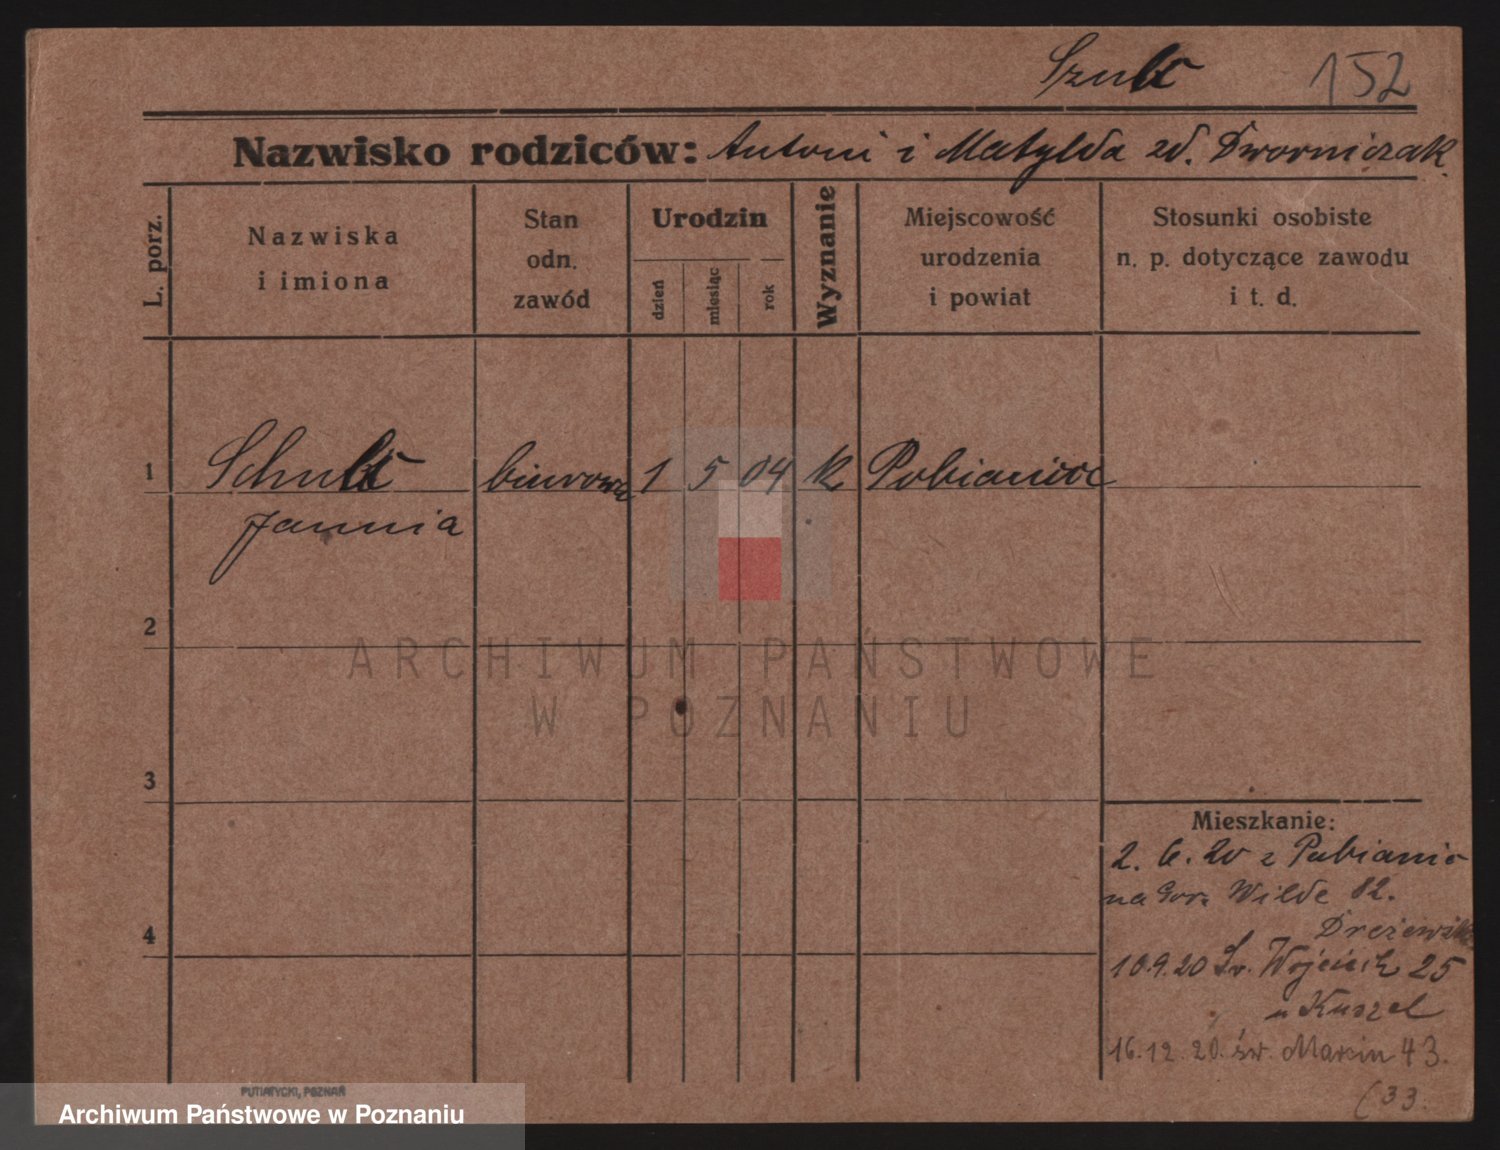 Szulc 152
Nazwisko rodziców: Antoni i Matylda zd. Dworniczak
L. porz.
Nazwiska
i imiona
Stan
odn.
zawód
Urodzin
dzień
miesiąc
rok
Wyznanie
Miejscowość
urodzenia
i powiat
Stosunki osobiste
n. p. dotyczące zawodu
i t. d.
1 Schulc biurowa 1 5 04 k Pabianice
Jannia
2
3
4
Mieszkanie:
2. 6. 20 z Pabianic
na Gór. Wilde 82.
10.9.20 Św. Wojciech 25
u Kuszel
16.12.20. św. Marcin 43.
(33.
ARCHIWUM PAŃSTWOWE
W POZNANIU
PUTIATYCKI, POZNAŃ
Archiwum Państwowe w Poznaniu